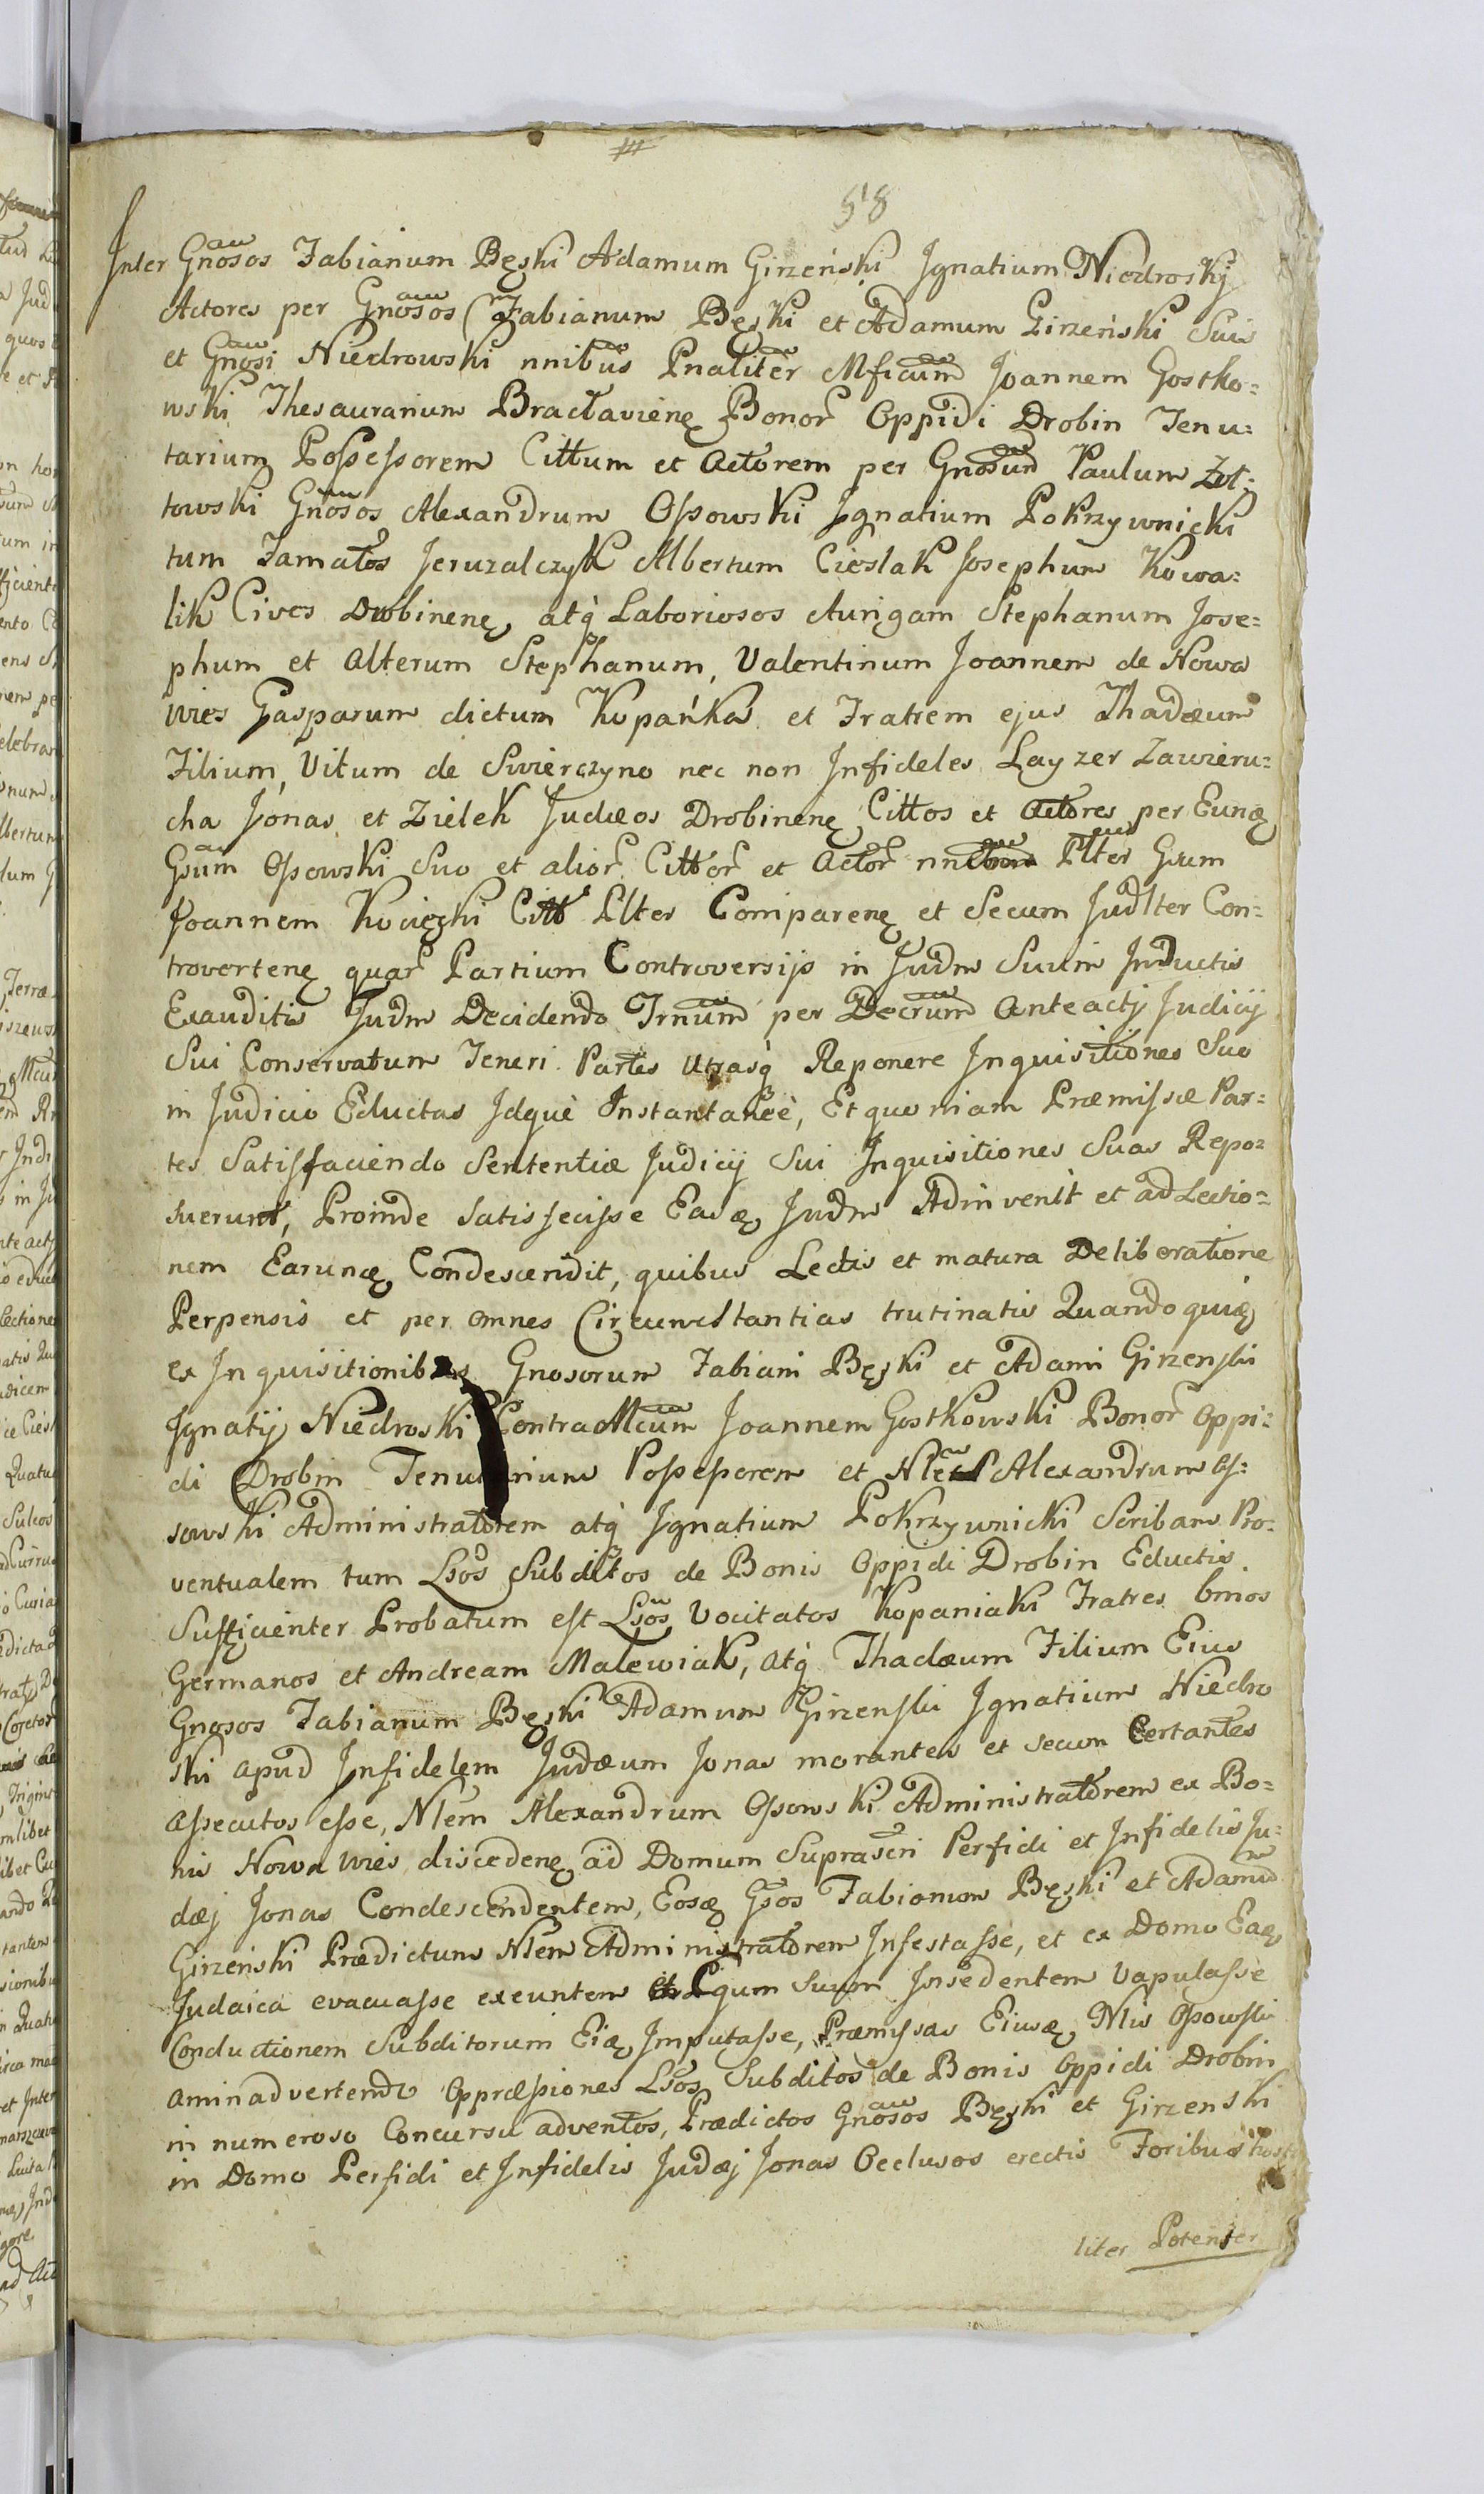 58
Inter Gnosos Fabianum Bęski Adamum Girzeński Ignatium Niedroskÿ
Actores per Gnosos Fabianum Bęski et Adamum Girzeński Suis
et Gnosi Niedrowski nnibus Pnaliter Mficum Joannem Gostko=
wski Thesaurarium Braclavienę Bonor Oppidi Drobin Tenu=
tarium Possessorem Cittum et Actorem per Gnosum Paulum Zot=
towski Gnosos Alexandrum Ossowski Ignatium Pokrzywnicki
tum Famatos Jeruzalczyk Albertum Cieslak Josephum Kowa=
lik Cives Drobinenę atq Laboriosos Aurigam Stephanum Jose=
phum et Alterum Stephanum, Valentinum Joannem de Nowa
wies Gasparum dictum Kopańka et Fratrem ejus Thadæum
Filium, Vitum de Swierczyno nec non Infideles Layzer Zawieru=
cha Jonas et Zielek Judæos Drobinenę Cittos et Actores per Eunę
Gsum Ossowski Suo et alior Cittor et Actor Plter Gsum
Joannem Kocięski Citt Plter Comparenę et Secum Judlter Con=
trovertenę quar Partium Controversijs in Judm Suum Inductis
Exauditis Judm Decidendo Trnum per Decrum Anteactj Judicij
Sui Conservatum Teneri Partes Utrasq Reponere Inquisitiones Suo
in Judicio Eductas Idquè Instantaneè, Et quoniam Præmissæ Par=
tes Satisfaciendo Sententiæ Judicij Sui Inquisitiones Suas Repo=
suerunt, Proinde Satisfecisse Easę Judm Adinvenit et ad Lectio=
nem Earunę Condescendit, quibus Lectis et matura Deliberatione
Perpensis et per omnes Circumstantias trutinatis Quandoquię
ex Inquisitionibus Gnosorum Fabiani Bęski et Adami Girzenski
Ignatij Niedroski Contra Mcum Joannem Gostkowski Bonor Oppi=
di Drobin Tenutarium Possessorem et Nlem Alexandrum Os=
sowski Administratorem atq Ignatium Pokrzywnicki Scribam Pro=
ventualem tum Lsos Subditos de Bonis Oppidi Drobin Eductis
Sufficienter Probatum est Lsos Vocitatos Kopaniaki Fratres
Germanos et Andream Malewiak, atq Thadæum Filium Eius
Gnosos Fabianum Bęski Adamum Girzenski Ignatium Niedro
ski apud Infidelem Judæum Jonas morantes et secum Certantes
assecutos esse, Nlem Alexandrum Ossowski Administratorem ex Bo=
nis Nowa wies discedenę ad Domum Suprascri Perfidi et Infidelis Ju=
dæj Jonas Condescendentem, Eosę Gsos Fabianum Bęski et Adamum
Girzeński Prædictum Nlem Administratorem Infestasse, et ex Domo Eaę
Judaica evacuasse exeuntem Equm Suum Insedentem Vapulasse
Conductionem Subditorum Eię Imputasse, Præmissas Eiusę Nlis Ossowski
aminadvertendo Oppræssiones Lsos Subditos de Bonis Oppidi Drobin
in numeroso Concursu adventos, Prædictos Gnosos Bęski et Girzenski
in Domo Perfidi et Infidelis Judæj Jonas Occlusos erectis Foribus hosti
liter Potenter